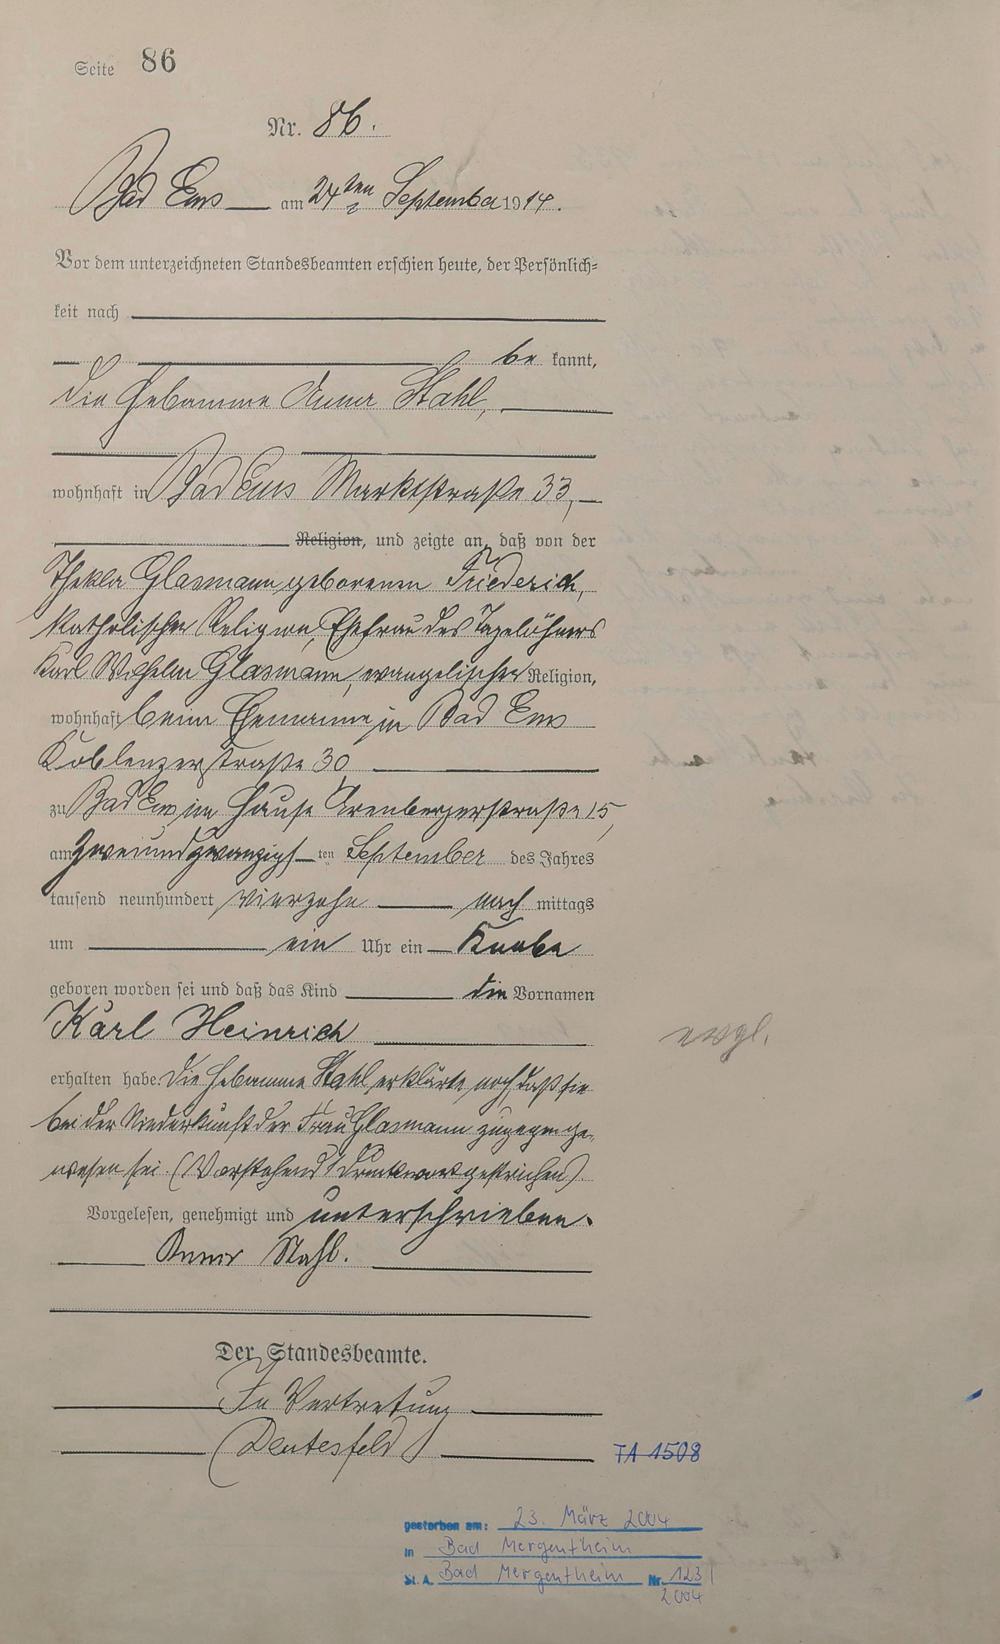 Seite 86
Nr. 86.
Bad Ems am 24ten September 1914.
Vor dem unterzeichneten Standesbeamten erschien heute, der Persönlich-
keit nach
be kannt,
die Hebamme Anna Stahl,
wohnhaft in Bad Ems Marktstraße 33,
Religion, und zeigte an, daß von der
Thekla Glasmann geborenen Friederich,
katholischer Religion, Ehefrau des Tagelöhners
Karl Wilhelm Glasmann, evangelischer Religion,
wohnhaft beim Ehemanne in Bad Ems
Koblenzerstraße 30
zu Bad Ems im Hause Arenbergerstraße 15,
am zweiundzwanzigsten September des Jahres
tausend neunhundert vierzehn nach mittags
um ein Uhr ein Knabe
geboren worden sei und daß das Kind die Vornamen
Karl Heinrich
evgl.
erhalten habe. Die Hebamme Stahl erklärte noch, daß sie
bei der Niederkunft der Frau Glasmann zugegen ge-
wesen sei. (Vorstehend 1 Druckwort gestrichen).
Vorgelesen, genehmigt und unterschrieben.
Anna Stahl.
Der Standesbeamte.
In Vertretung
(Deutesfeld)
TA 1508
gestorben am: 23. März 2004
in Bad Mergentheim
St. A. Bad Mergentheim Nr. 123/
2004